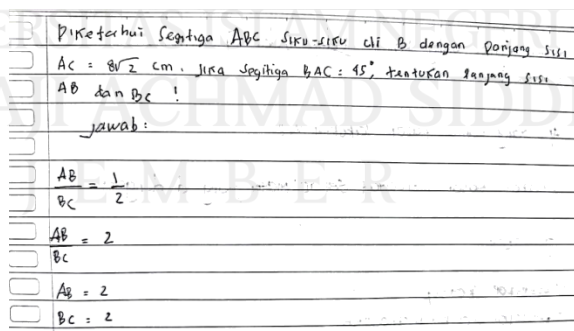 Diketahui Segitiga ABC siku-siku di B dengan panjang sisi
AC = 8√2 cm. Jika segitiga BAC = 45°, tentukan panjang sisi
AB dan BC !
jawab:
AB/BC = 1/2
AB/BC = 2
AB = 2
BC = 2